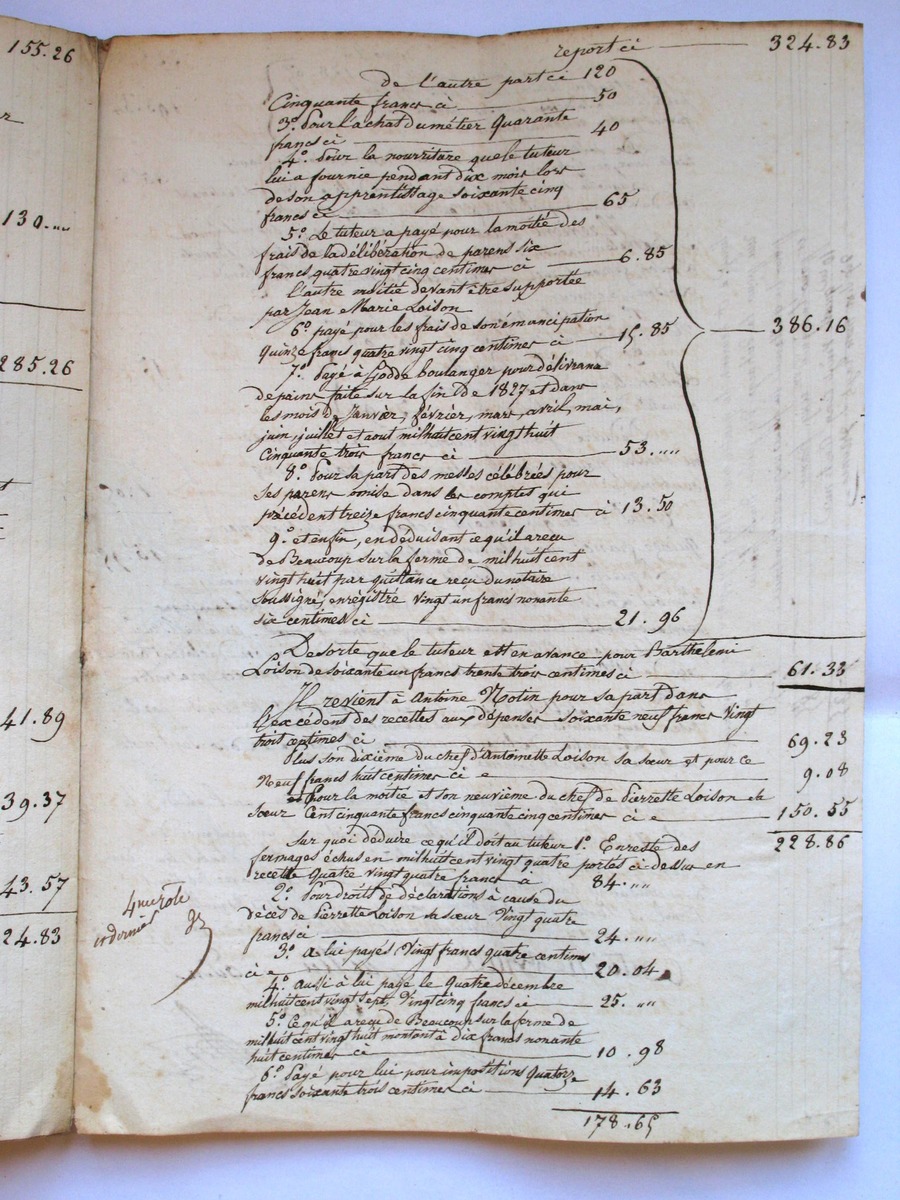 155.26
130.""
285.26
41.89
39.37
43.57
24.83
report ci 324.83
de l'autre part ci 120
Cinquante francs ci 50
3.° Pour l'achat du métier Quarante
francs ci 40
4.° Pour la nourriture que le tuteur
lui a fournie pendant dix mois lors
de son apprentissage soixante cinq
francs ci 65
5.° Le tuteur a payé pour la moitié des
frais de la délibération de parens six
francs quatre vingt cinq centimes ci 6.85
l'autre moitié devant être supportée
par Jean Marie Loison
6.° payé pour les frais de son émancipation
Quinze francs quatre vingt cinq centimes ci 15.85
386.16
7.° Payé à Godde boulanger pour délivrance
de pains faite sur la fin de 1827 et dans
les mois de Janvier, février, mars, avril, mai,
juin, juillet et aout mil huit cent vingt huit
Cinquante trois francs ci 53.""
8.° Pour sa part des messes célébrées pour
ses parens omise dans les comptes qui
précédent treize francs cinquante centimes ci 13.50
9.° et enfin, en déduisant ce qu'il a reçu
de Beaucoup sur la ferme de mil huit cent
vingt huit par quittance reçu du notaire
soussigné, enregistré vingt un francs nonante
six centimes ci 21.96
De sorte que le tuteur est en avance pour Barthelemi
Loison de soixante un francs trente trois centimes ci 61.33
Il revient à Antoine Notin pour sa part dans
l'excédent des recettes aux dépenses soixante neuf francs vingt
trois centimes ci 69.23
Plus son dixième du chef d'Antoinette Loison sa sœur et pour ce
Neuf francs huit centimes ci 9.08
Pour la moitié et son neuvième du chef de Pierrette Loison sa
sœur Cent cinquante francs cinquante cinq centimes ci 150.55
228.86
Sur quoi déduire ce qu'il doit au tuteur 1.° En reste des
fermages échus en mil huit cent vingt quatre portés ci-dessus en
recette Quatre vingt quatre francs ci 84.""
2.° Pour droits de déclarations à cause du
décès de Pierrette Loison sa sœur Vingt quatre
francs ci 24.""
3.° a lui payés Vingt francs quatre centimes
ci 20.04
4.° aussi à lui payé le Quatre décembre
mil huit cent vingt sept, Vingt cinq francs ci 25.""
5.° Ce qu'il a reçu de Beaucoup sur la ferme de
mil huit cent vingt huit montant à dix francs nonante
huit centimes ci 10.98
6.° Payé pour lui pour impositions Quatorze
francs soixante trois centimes ci 14.63
178.65
4me role
et dernier